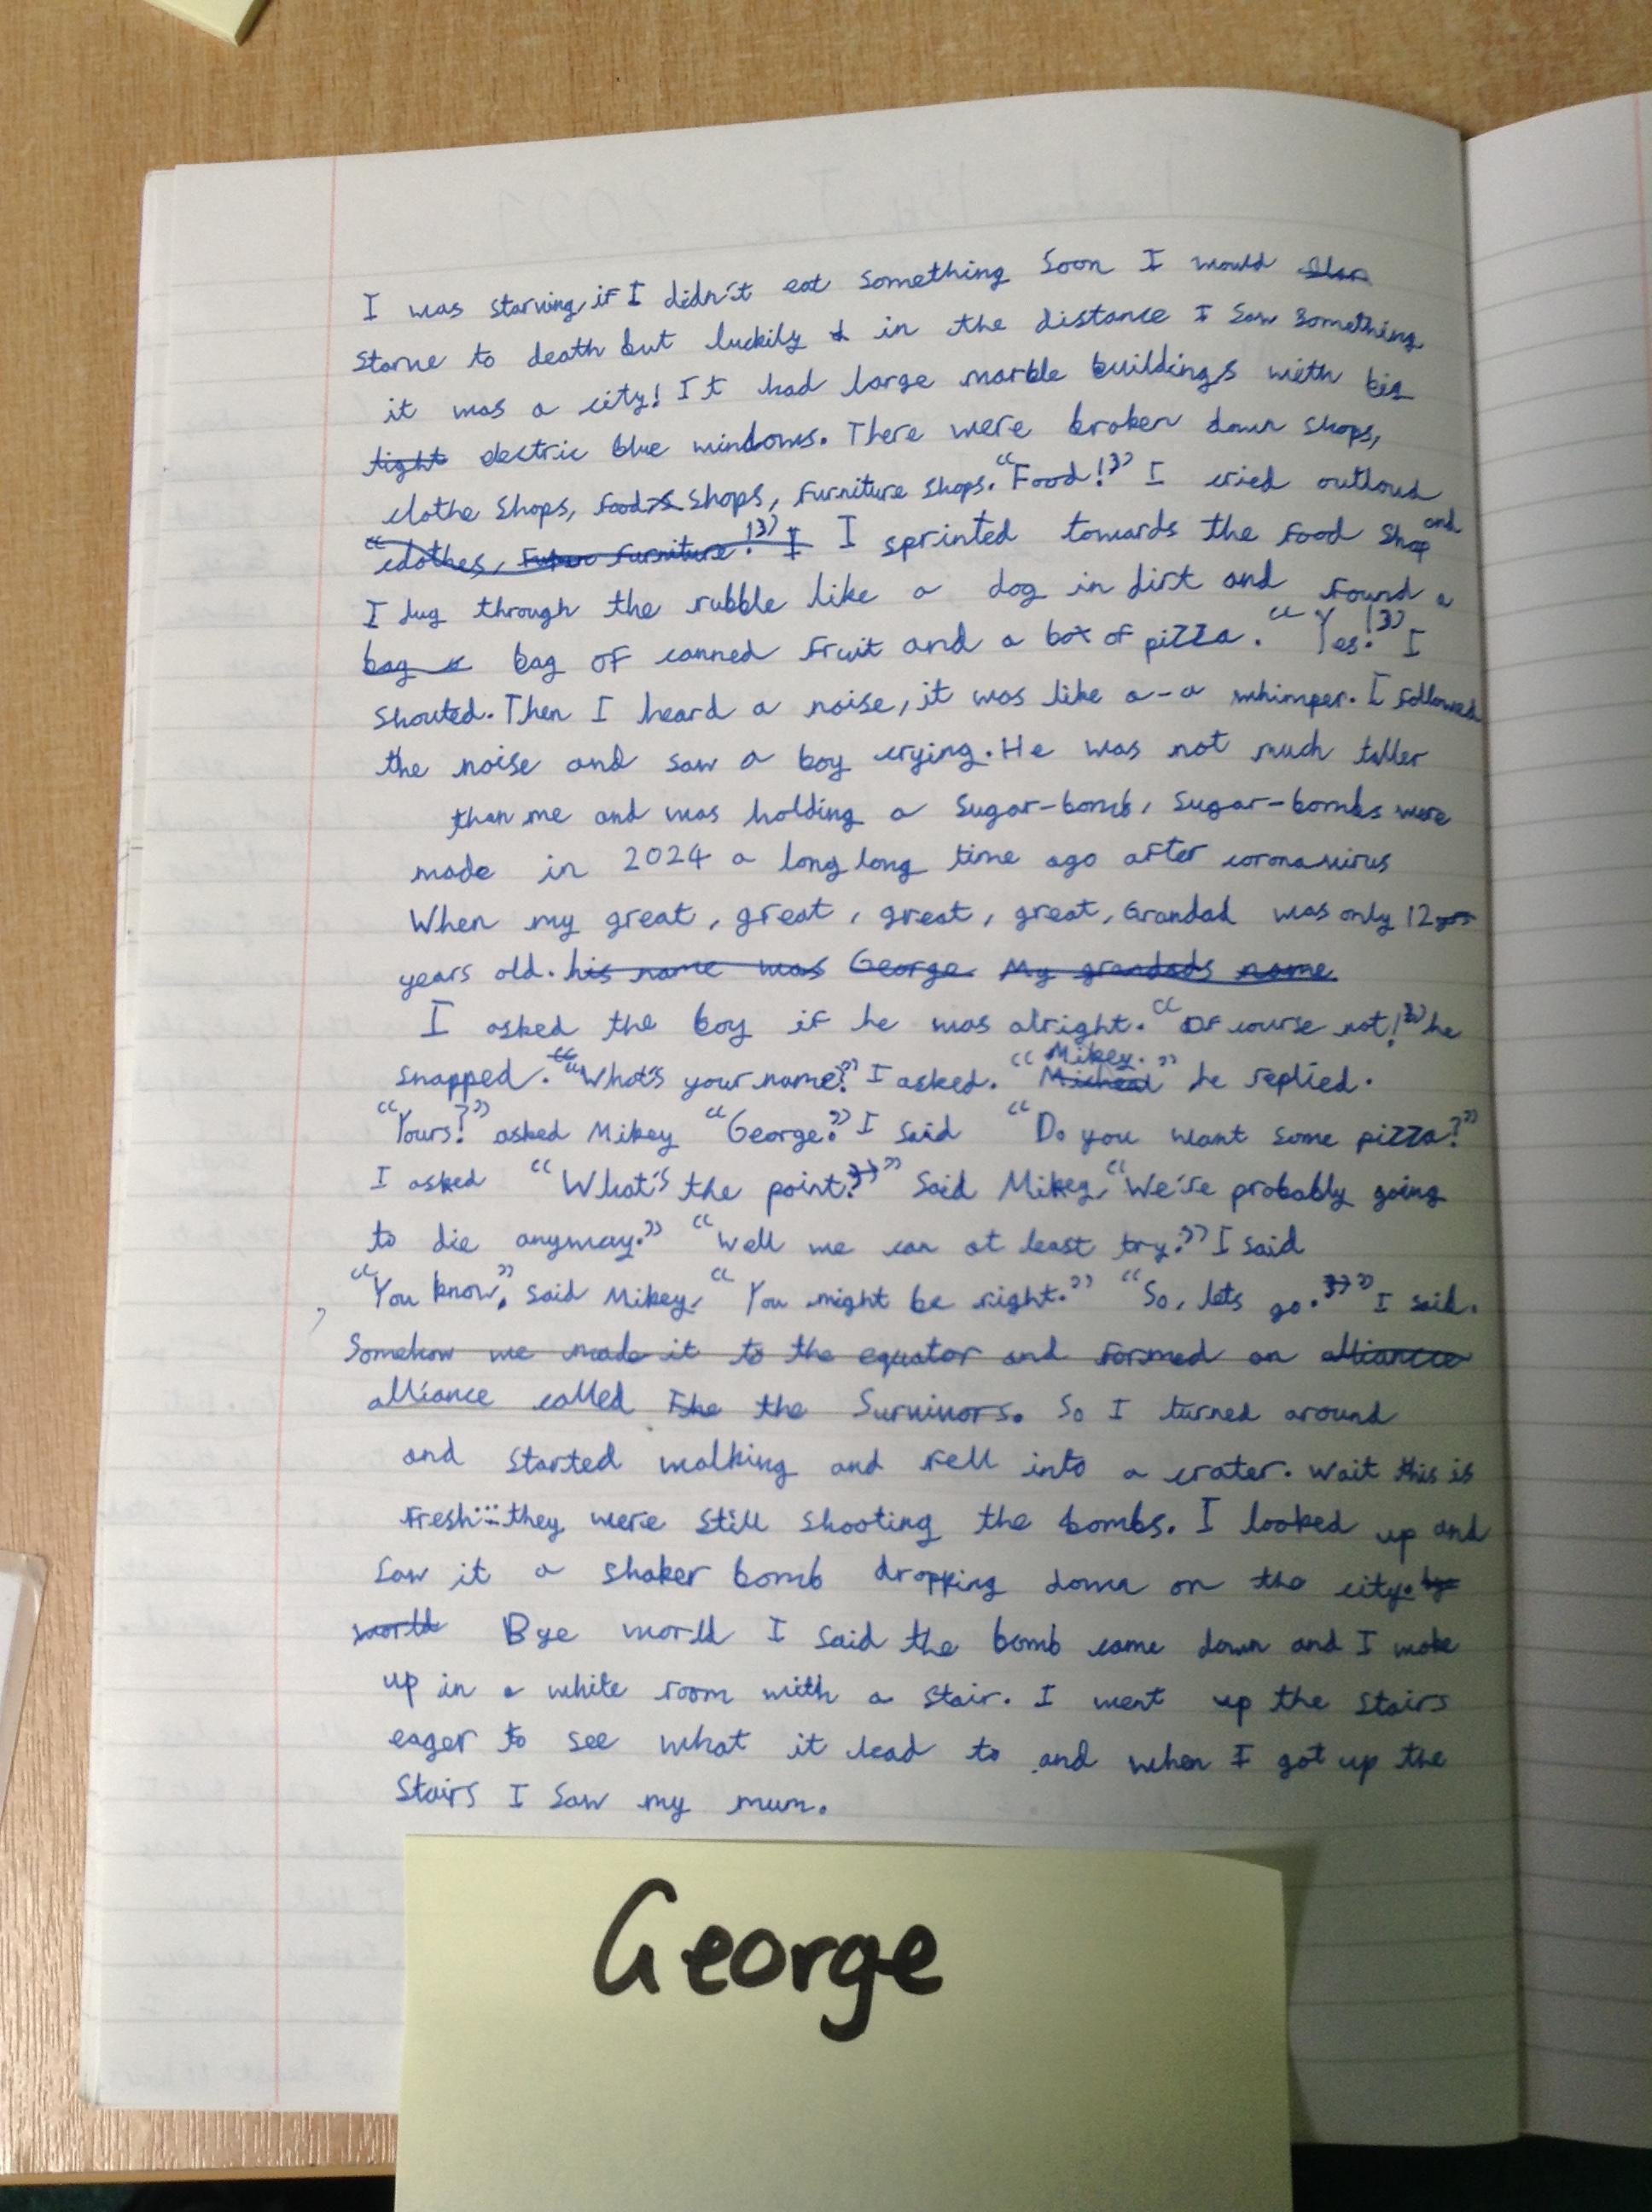 I was starving, if I didn't eat something soon I would
starve to death but luckily in the distance I saw something
it was a city! It had large marble buildings with big
tight electric blue windows. There were broken down shops,
clothe shops, food shops, furniture shops. "Food!" I cried outloud
"clothes, furniture!" I I sprinted towards the food shop and
I dug through the rubble like a dog in dirt and found a
bag bag of canned fruit and a box of pizza. "Yes!" I
shouted. Then I heard a noise, it was like a-a whimper. I followed
the noise and saw a boy crying. He was not much taller
than me and was holding a sugar-bomb, sugar-bombs were
made in 2024 a long long time ago after coronavirus
When my great, great, great, great, Grandad was only 12
years old. his name was George. My grandads name
I asked the boy if he was alright. "Of course not!" he
snapped. "What's your name?" I asked. "Micheal Mikey." he replied.
"Yours?" asked Mikey "George." I said "Do you want some pizza?"
I asked "What's the point?" said Mikey, "We're probably going
to die anyway." "Well we can at least try." I said
"You know," said Mikey, "You might be right." "So, lets go." I said.
Somehow we made it to the equator and formed an alliancce
alliance called the the Survivors. So I turned around
and started walking and fell into a crater. Wait this is
fresh... they were still shooting the bombs. I looked up and
saw it a shaker bomb dropping down on the city. bye
world Bye world I said the bomb came down and I woke
up in a white room with a stair. I went up the stairs
eager to see what it lead to and when I got up the
stairs I saw my mum.
George